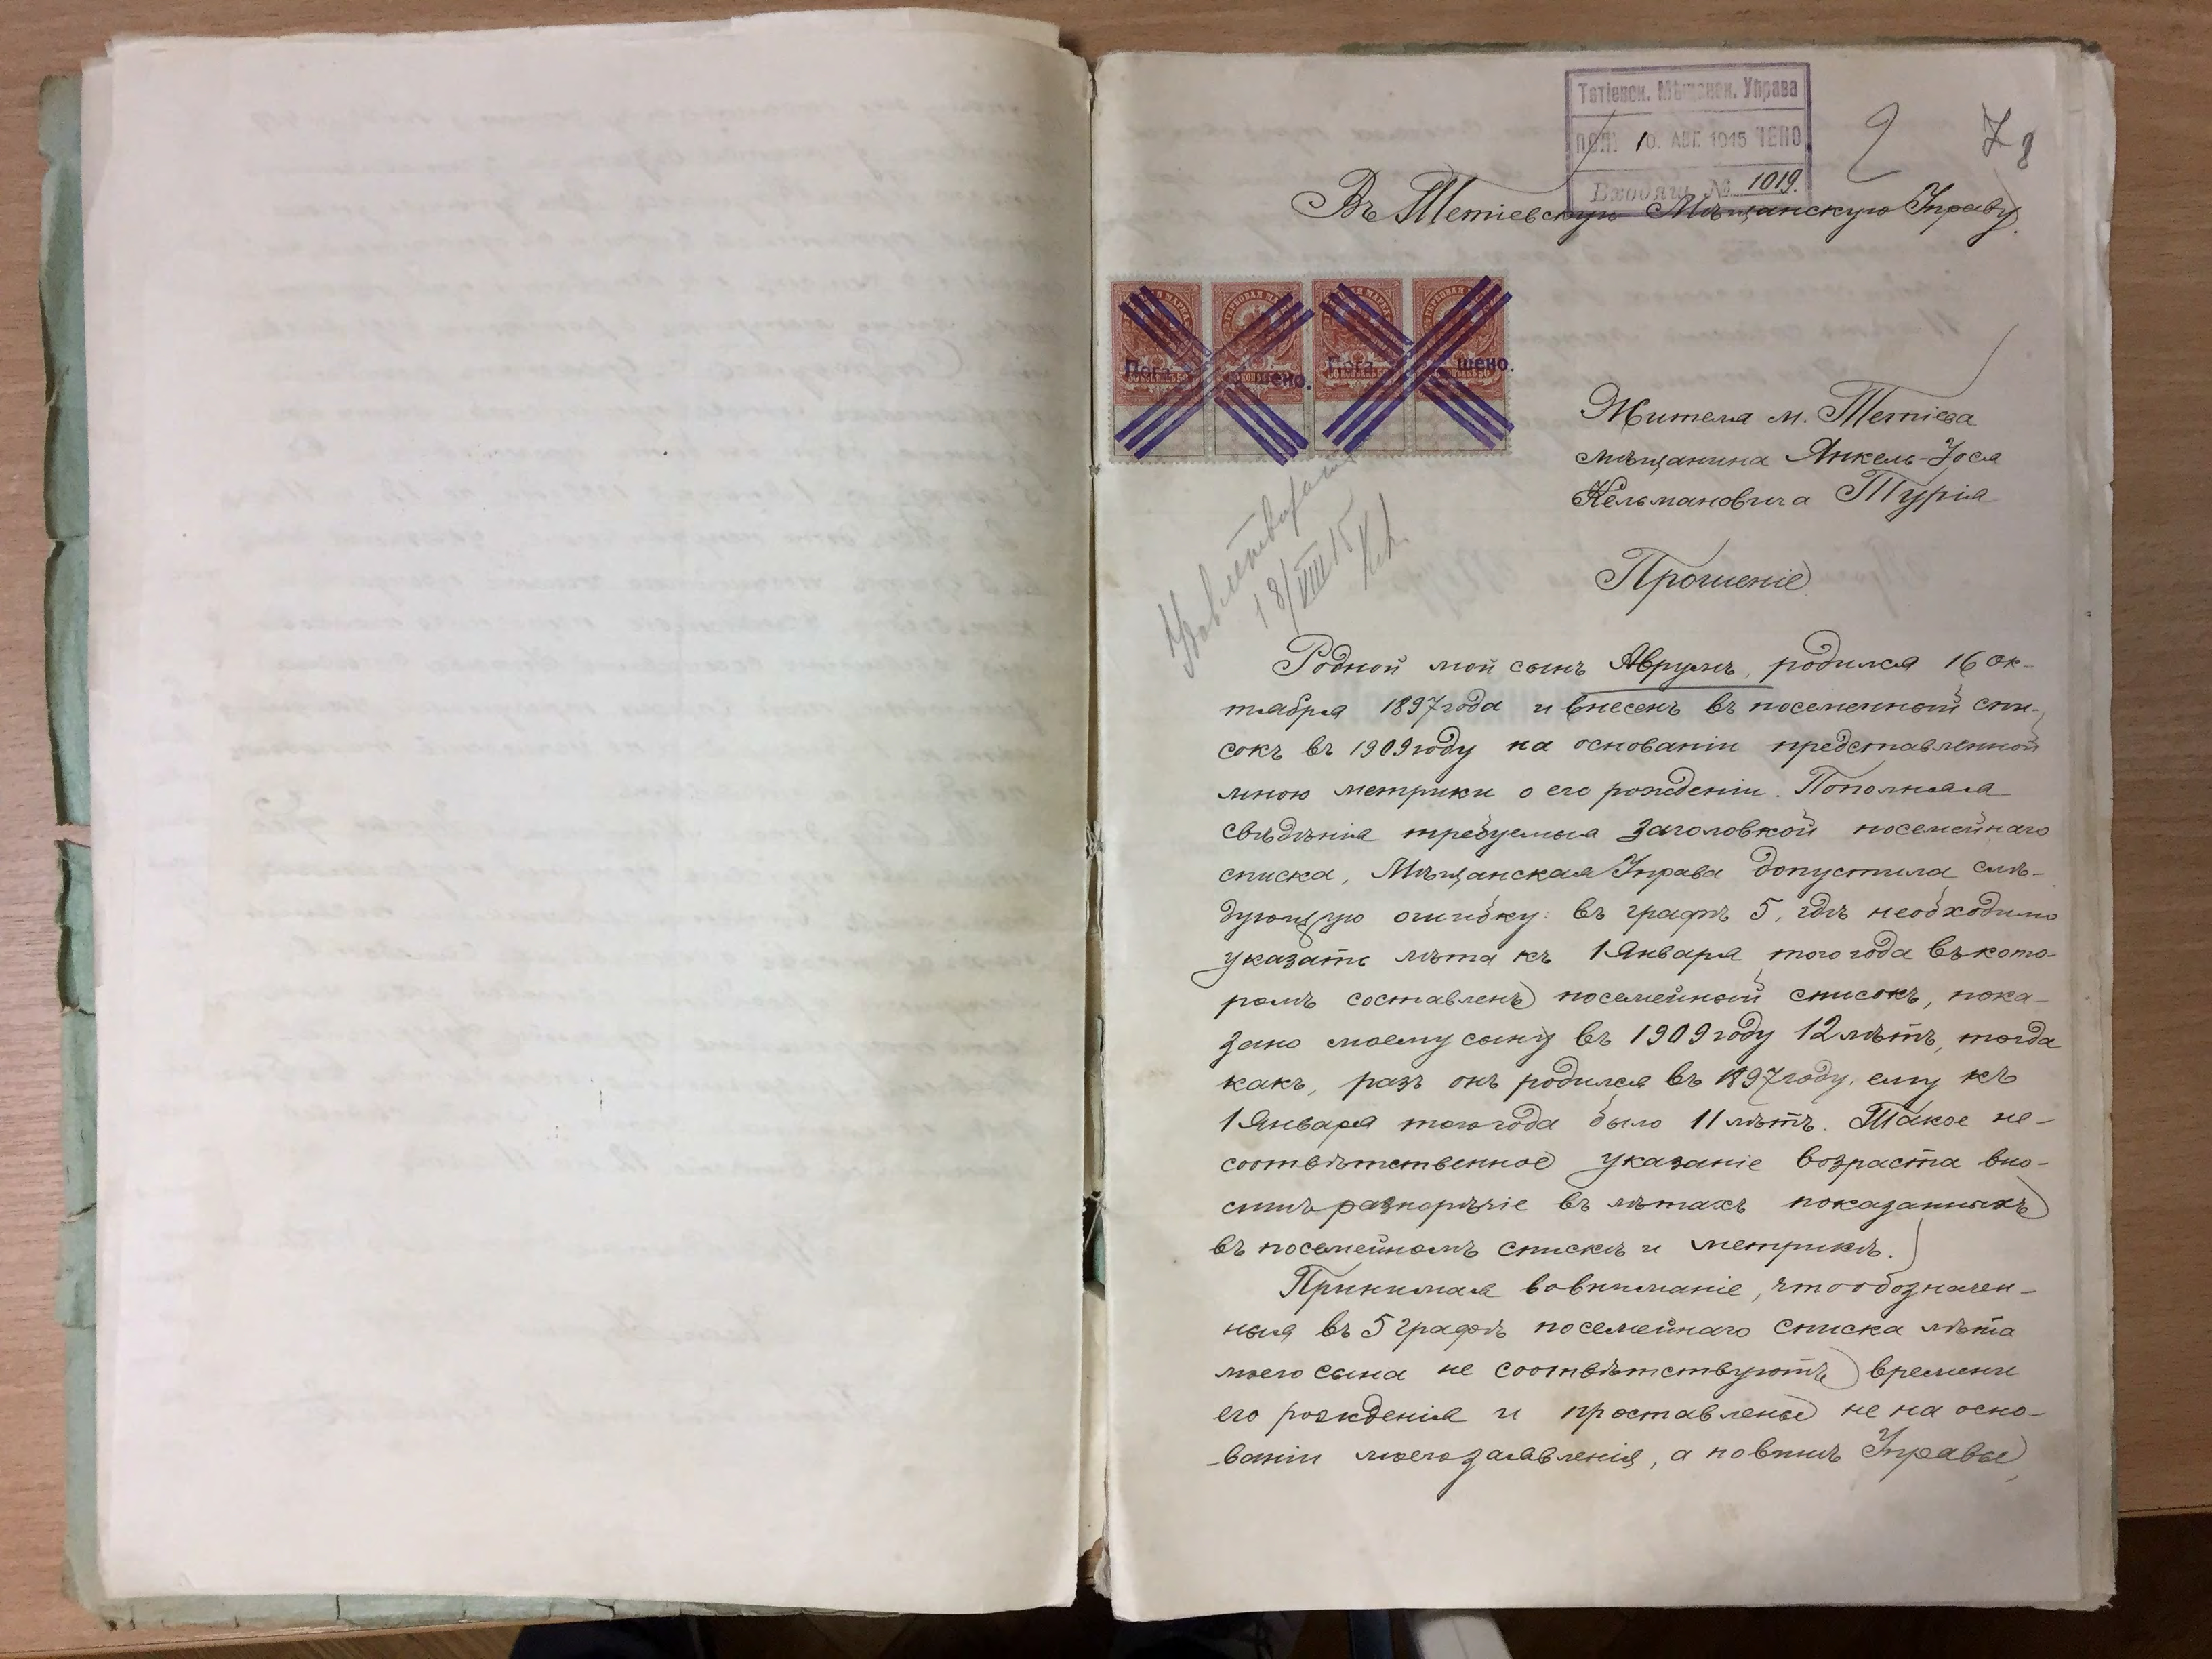 Тетіевск. Мѣщанск. Управа
ПОЛУ 10. АВГ. 1915 ЧЕНО
Входящ. № 1019.
2
7 8
Въ Тетіевскую Мѣщанскую Управу.
Погашено.
Погашено.
Жителя м. Тетіева
мѣщанина Янкель-Іося
Кельмановича Турія
18/VIII 15
Прошеніе
Родной мой сынъ Аврумъ, родился 16 Ок-
тября 1897 года и внесенъ въ посемейный спи-
сокъ въ 1909 году на основаніи представленной
мною метрики о его рожденіи. Пополняя
свѣдѣнія требуемыя заголовкой посемейнаго
списка, Мѣщанская Управа допустила слѣ-
дующую ошибку: въ графѣ 5, гдѣ необходимо
указать лѣта къ 1 Января того года въ кото-
ромъ составленъ посемейный списокъ, пока-
зано моему сыну въ 1909 году 12 лѣтъ, тогда
какъ, разъ онъ родился въ 1897 году, ему къ
1 Января того года было 11 лѣтъ. Такое не-
соотвѣтственное указаніе возраста вно-
ситъ разнорѣчіе въ лѣтахъ показанныхъ
въ посемейномъ спискѣ и метрикѣ.
Принимая во вниманіе, что обозначен-
ныя въ 5 графѣ посемейнаго списка лѣта
моего сына не соотвѣтствуютъ времени
его рожденія и проставлены не на осно-
-ваніи моего заявленія, а по винѣ Управы,